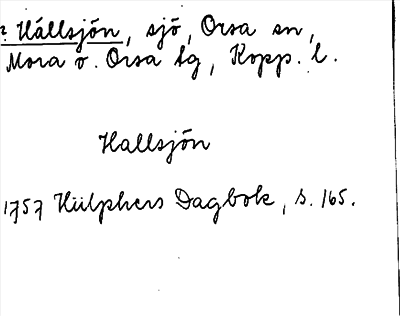 ? Hållsjön, sjö, Orsa sn,
Mora o. Orsa tg, Kopp. l.
Hallsjön
1757 Hülphers Dagbok, s. 165.